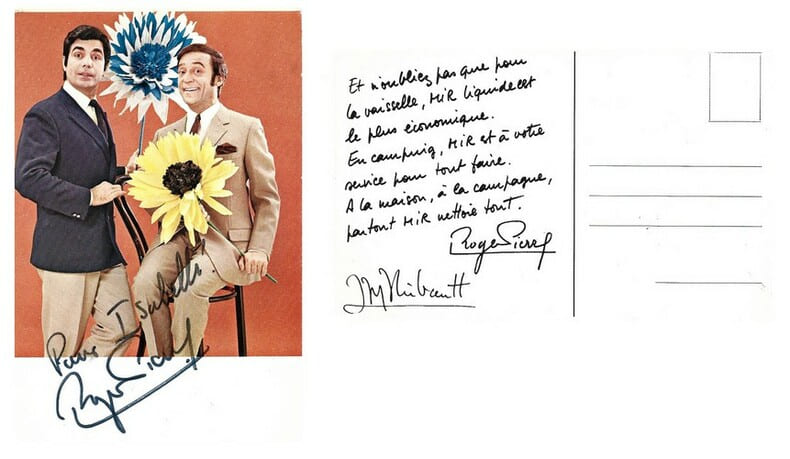 Pour Isabelle
Roger Pierre
Et n'oubliez pas que pour
la vaisselle, MiR liquide est
le plus économique.
En camping, MiR est à votre
service pour tout faire.
A la maison, à la campagne,
partout MiR nettoie tout.
Roger Pierre
JM Thibault